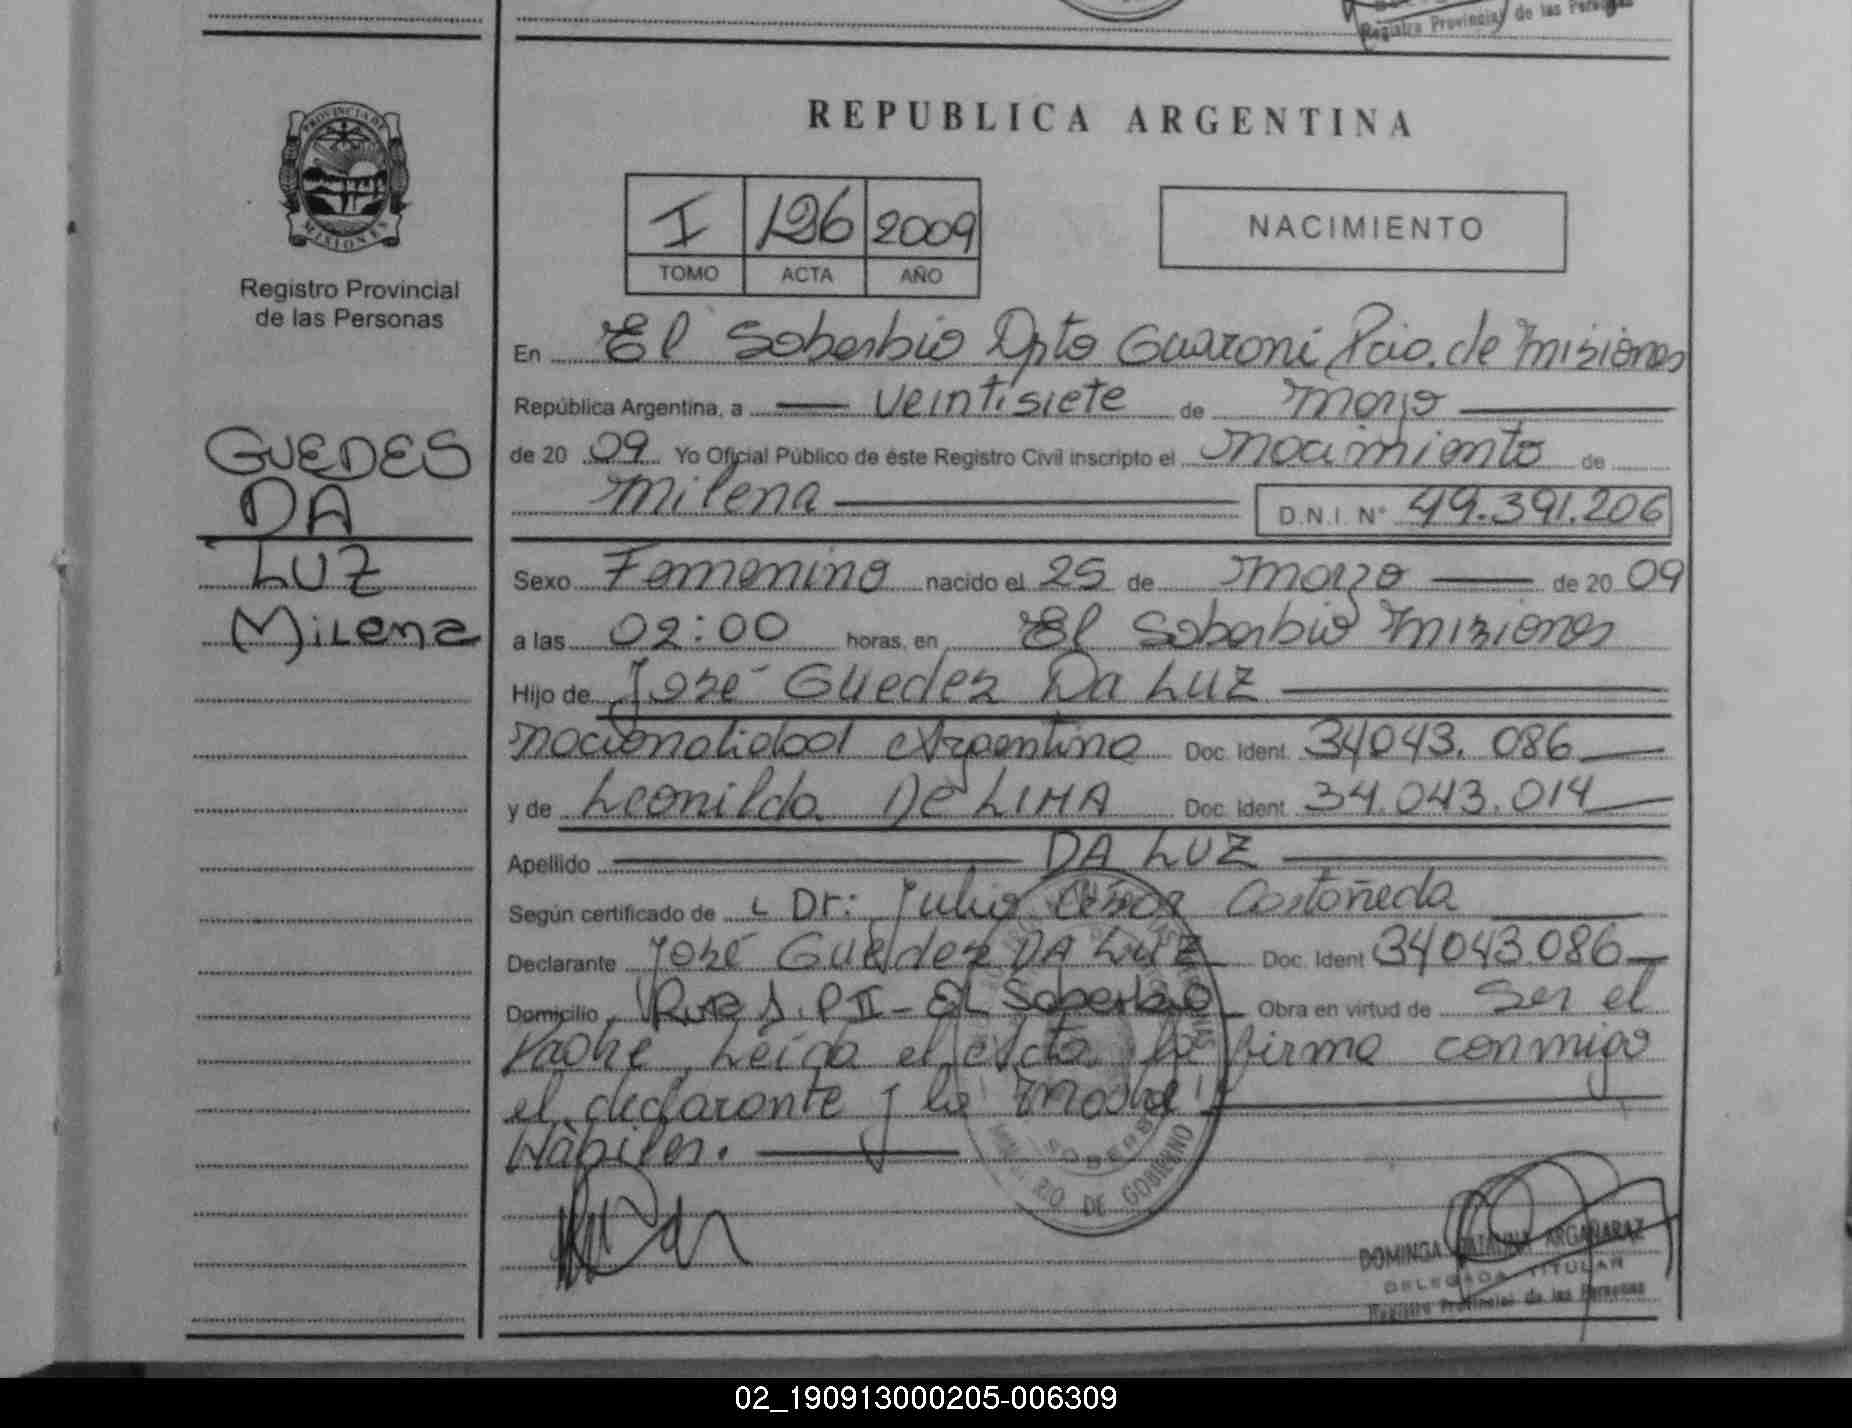 Registro Provincial de las Personas
PROVINCIA DE
MISIONES
Registro Provincial
de las Personas
GUEDES
DA
LUZ
Milena
REPUBLICA ARGENTINA
I 126 2009
TOMO ACTA AÑO
NACIMIENTO
En El Soberbio Dpto Guaraní Pcia. de Misiones
República Argentina, a veintisiete de Marzo
de 20 09 Yo Oficial Público de éste Registro Civil inscripto el Nacimiento de
Milena D.N.I. N° 49.391.206
Sexo Femenino nacido el 25 de Marzo de 20 09
a las 02:00 horas, en El Soberbio Misiones
Hijo de José Guedes Da Luz
Nacionalidad Argentina Doc. Ident. 34043.086
y de Leonilda De LIMA Doc. Ident. 34.043.014
Apellido DA LUZ
Según certificado de Dr: Julio César Castañeda
Declarante José Guedes DA LUZ Doc. Ident 34043.086
Domicilio El Soberbio Obra en virtud de Ser el
Padre Leída el Acta la firma conmigo
el declarante y la Madre
Hábiles.
SOBERBIO
DE GOBIERNO
DOMINGA CATALINA ARGAÑARAZ
DELEGADA TITULAR
Registro Provincial de las Personas
02_190913000205-006309